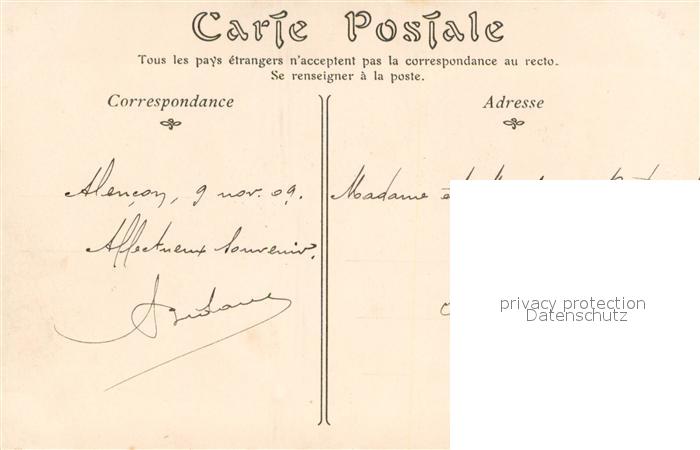 Carte Postale
Tous les pays étrangers n'acceptent pas la correspondance au recto.
Se renseigner à la poste.
Correspondance
Adresse
Alençon, 9 nov. 09.
Affectueux souvenir.
Madame
privacy protection
Datenschutz